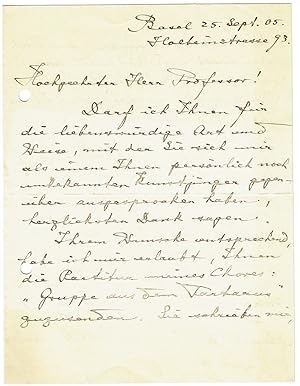 Basel 25. Sept. 05.
Holbeinstrasse 93.
Hochgeehrter Herr Professor!
Darf ich Ihnen für
die liebenswürdige Art und
Weise, mit der Sie sich mir
als einem Ihnen persönlich noch
unbekannten Kunstjünger gegen
über ausgesprochen haben,
herzlichsten Dank sagen.
Ihrem Wunsche entsprechend,
habe ich mir erlaubt, Ihnen
die Partitur meines Chores:
"Gruppe aus dem Tartarus"
zuzusenden. Sie schrieben mir,